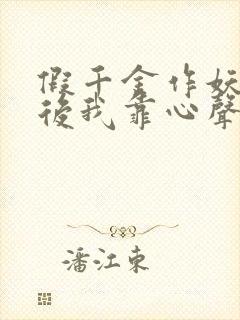 假千金作妖
後我靠心聲
潘江東